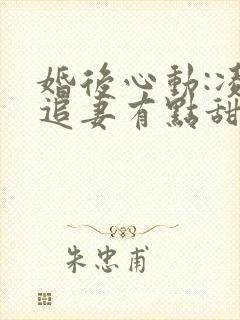 婚後心動:凌
追妻有點甜
朱忠甫